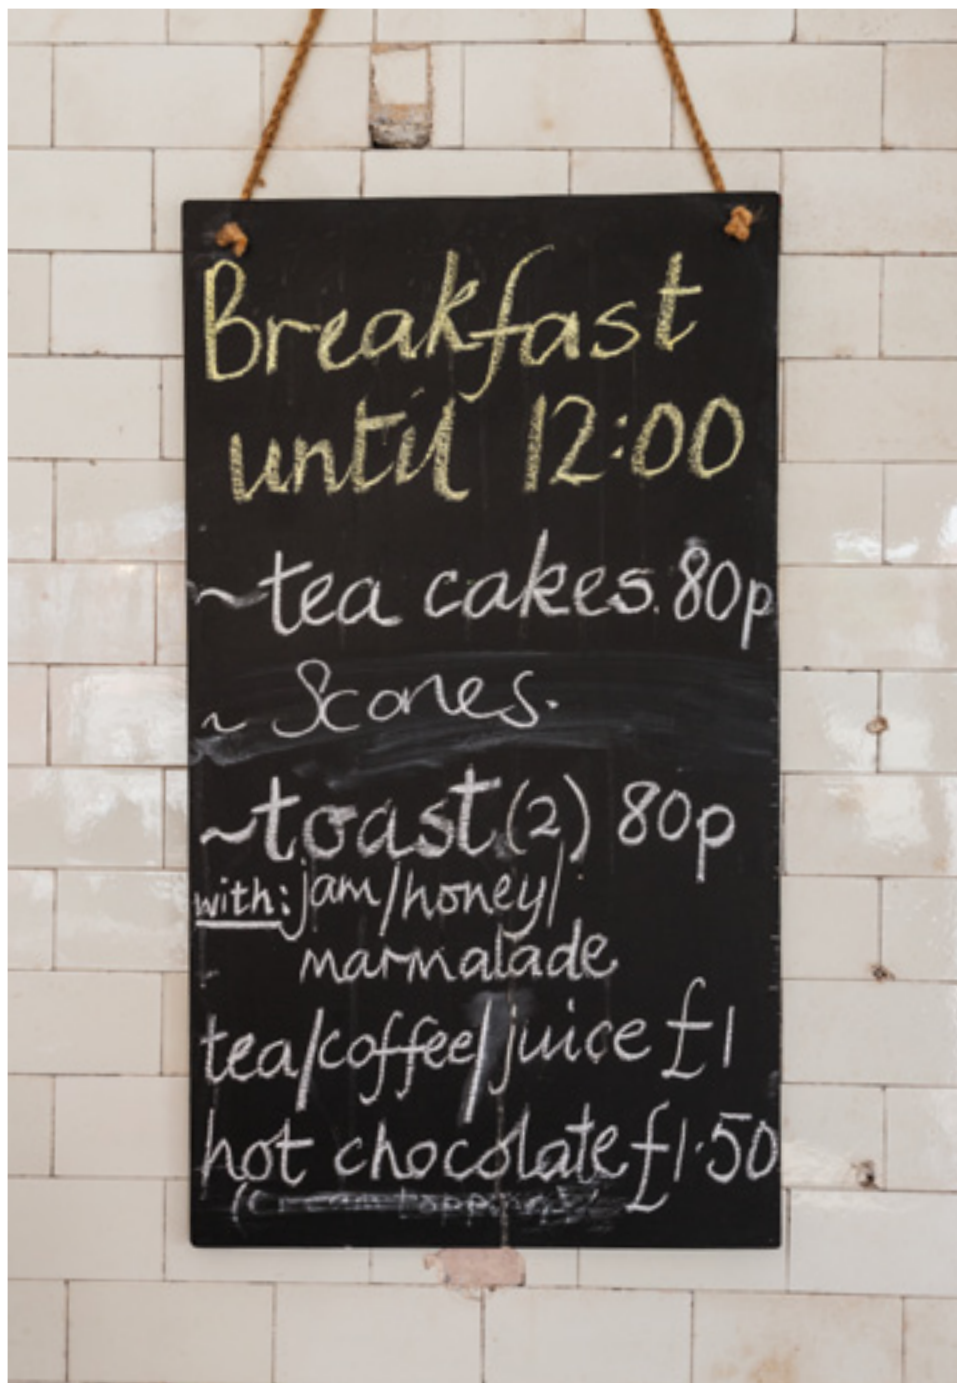 Breakfast
until 12:00
~tea cakes. 80p
~ Scones.
~toast (2) 80p
with: jam/honey/
marmalade
tea/coffee/juice £1
hot chocolate £1.50
(Cream topping